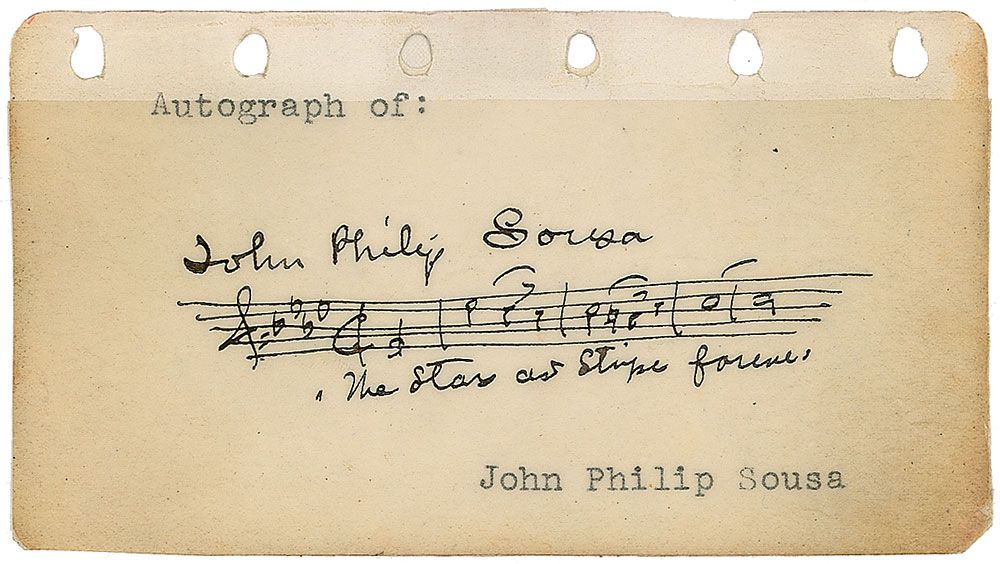 Autograph of:
John Philip Sousa
"The Stars and Stripe forever"
John Philip Sousa